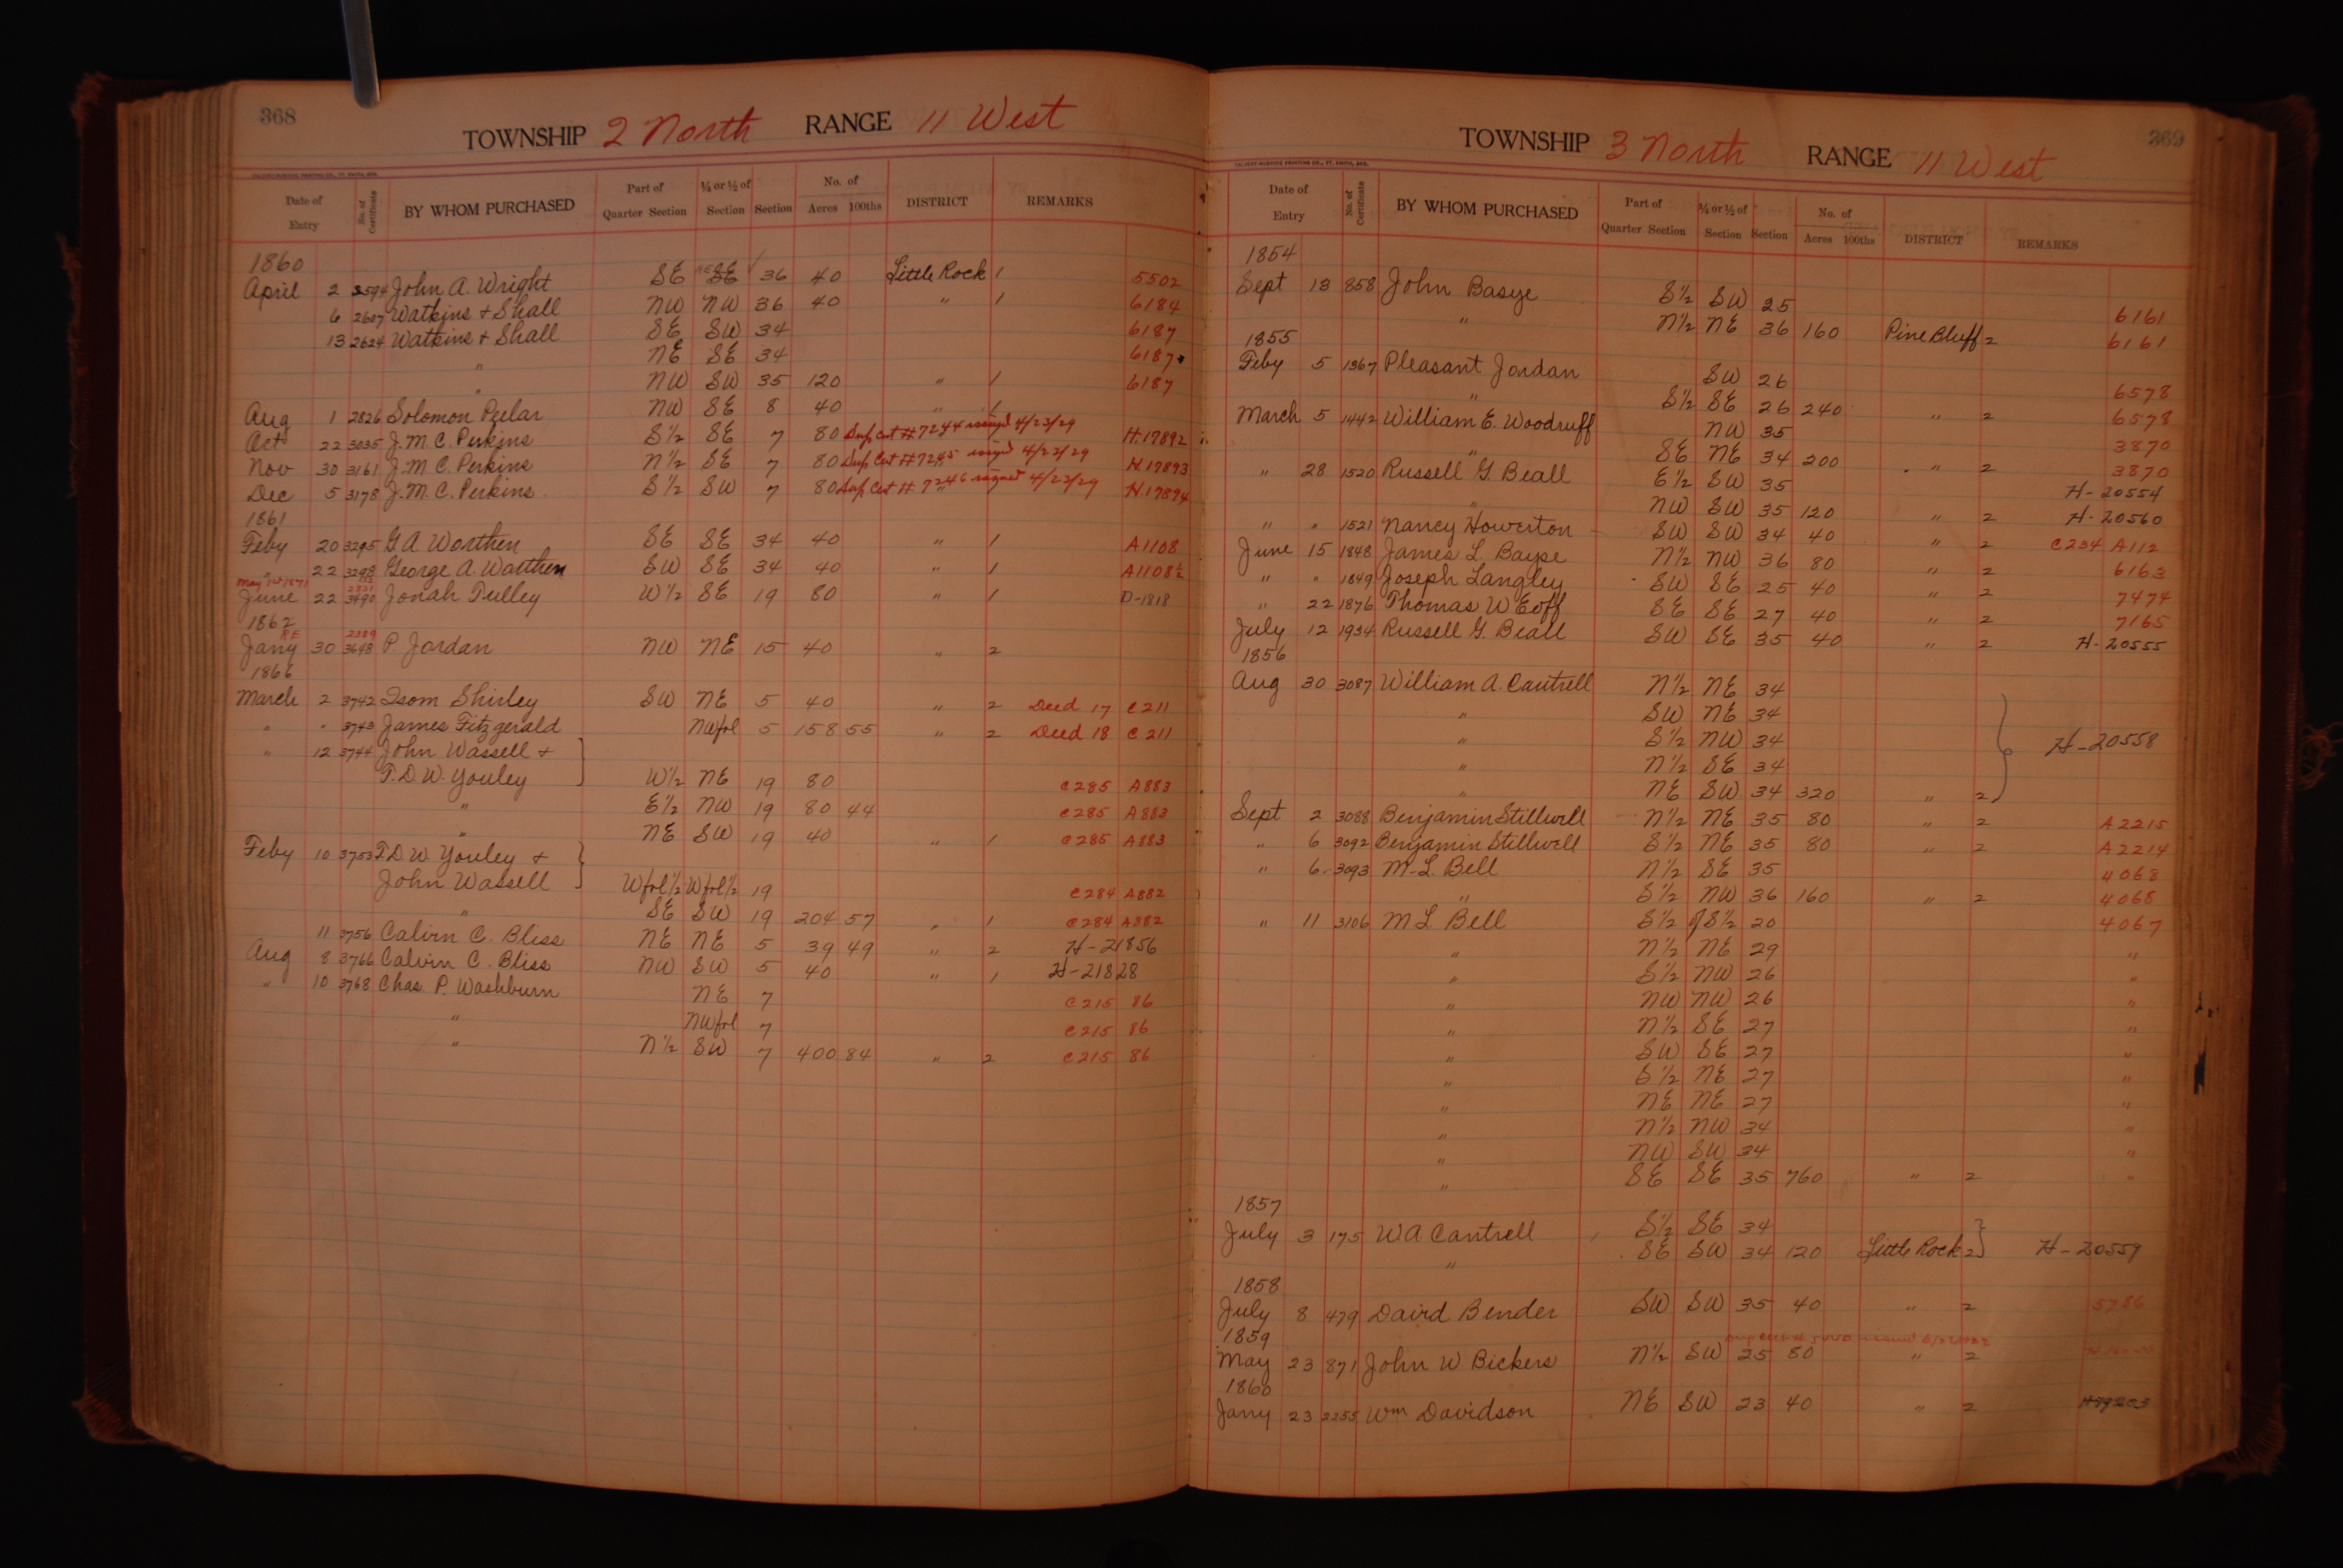 368
TOWNSHIP 2 North RANGE 11 West
CALVERT-McBRIDE PRINTING CO., FT. SMITH, ARK.
Date of Entry No. of Certificate BY WHOM PURCHASED Part of Quarter Section ¼ or ½ of Section Section No. of Acres 100ths DISTRICT REMARKS
1860
April 2 2594 John A. Wright SE NE SE 36 40 Little Rock 1 5502
6 2607 Watkins + Shall NW NW 36 40 " 1 6184
13 2624 Watkins + Shall SE SW 34 6187
" NE SE 34 6187
" NW SW 35 120 " 1 6187
Aug 1 2826 Solomon Peeler NW SE 8 40 " 1
Oct 22 3035 J. M. C. Perkins S½ SE 7 80 Dup Cert # 7244 issued 4/23/29 H.17892
Nov 30 3161 J. M. C. Perkins N½ SE 7 80 Dup Cert # 7245 issued 4/23/29 H.17893
Dec 5 3178 J. M. C. Perkins S½ SW 7 80 Dup Cert # 7246 issued 4/23/29 H.17894
1861
Feby 20 3295 G A Worthen SE SE 34 40 " 1 A1108
" 22 3298 George A. Worthen SW SE 34 40 " 1 A1108½
May 1st 1871
June 22 3490 Jonah Tulley W½ SE 19 80 " 1 D-1818
1862
RE 2389
Jany 30 3648 P. Jordan NW NE 15 40 " 2
1866
March 2 3742 Isom Shirley SW NE 5 40 " 2 Deed 17 C211
" " 3743 James Fitzgerald NWfrl 5 158 55 " 2 Deed 18 C211
" 12 3744 John Wassell +
T. D. W. Youley W½ NE 19 80 C285 A883
" E½ NW 19 80 44 C285 A883
" NE SW 19 40 " 1 C285 A883
Feby 10 3753 T. D. W. Youley +
John Wassell Wfrl½ Wfrl½ 19 C284 A882
" SE SW 19 204 57 " 1 C284 A882
11 3756 Calvin C. Bliss NE NE 5 39 49 " 2 H-21856
Aug 8 3766 Calvin C. Bliss NW SW 5 40 " 1 H-21828
" 10 3768 Chas. P. Washburn NE 7 C215 86
" NWfrl 7 C215 86
" N½ SW 7 400 84 " 2 C215 86
369
TOWNSHIP 3 North RANGE 11 West
CALVERT-McBRIDE PRINTING CO., FT. SMITH, ARK.
Date of Entry No. of Certificate BY WHOM PURCHASED Part of Quarter Section ¼ or ½ of Section Section No. of Acres 100ths DISTRICT REMARKS
1854
Sept 18 858 John Basye S½ SW 25 6161
" N½ NE 36 160 Pine Bluff 2 6161
1855
Feby 5 1367 Pleasant Jordan SW 26 6578
" S½ SE 26 240 " 2 6578
March 5 1442 William E. Woodruff NW 35 3870
" SE NE 34 200 " 2 3870
" 28 1520 Russell G. Beall E½ SW 35 H-20554
" NW SW 35 120 " 2 H-20560
" " 1521 Nancy Howerton SW SW 34 40 " 2 C234 A112
June 15 1848 James L. Bayse N½ NW 36 80 " 2 6163
" " 1849 Joseph Langley SW SE 25 40 " 2 7474
" 22 1876 Thomas W Eoff SE SE 27 40 " 2 7165
July 12 1934 Russell G. Beall SW SE 35 40 " 2 H-20555
1856
Aug 30 3087 William A. Cantrell N½ NE 34
" SW NE 34
" S½ NW 34 H-20558
" N½ SE 34
" NE SW 34 320 " 2
Sept 2 3088 Benjamin Stillwell N½ NE 35 80 " 2 A2215
" 6 3092 Benjamin Stillwell S½ NE 35 80 " 2 A2214
" 6 3093 M. L. Bell N½ SE 35 4068
" S½ NW 36 160 " 2 4068
" 11 3106 M L Bell S½ of S½ 20 4067
" N½ NE 29 "
" S½ NW 26 "
" NW NW 26 "
" N½ SE 27 "
" SW SE 27 "
" S½ NE 27 "
" NE NE 27 "
" N½ NW 34 "
" NW SW 34 "
" SE SE 35 760 " 2 "
1857
July 3 175 W A Cantrell S½ SE 34
" SE SW 34 120 Little Rock 2 H-20559
1858
July 8 479 David Bender SW SW 35 40 " 2 5786
1859
May 23 871 John W Bickers N½ SW 25 80 " 2
1860
Jany 23 2255 Wm Davidson NE SW 23 40 " 2